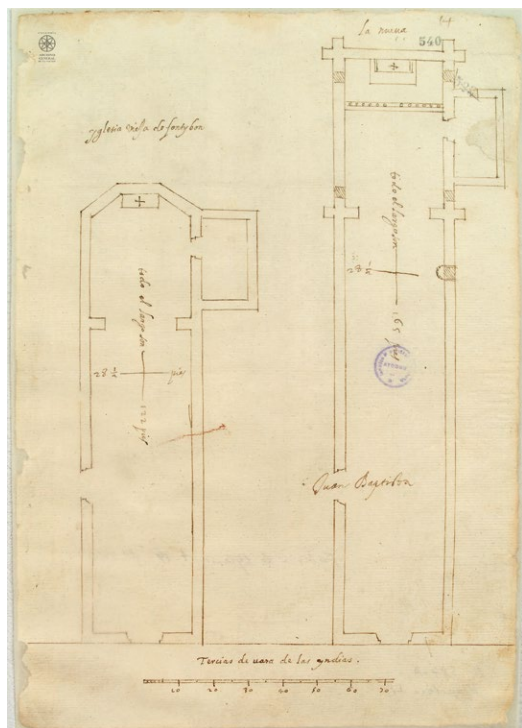 la nueua
540
yglesia vieja de fontybon
todo el largo son
28 ½
165 pies
todo el largo son
28 ½ pies
122 pies
Juan Baptista
Tercias de uara de las yndias.
10 20 30 40 50 60 70